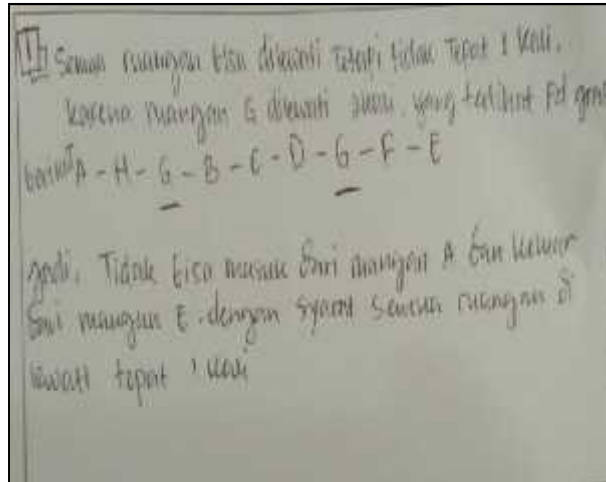 1) Semua ruangan bisa dilewati tetapi tidak tepat 1 kali.
karena ruangan G dilewati yang terlihat pd
berikut A - H - G - B - C - D - G - F - E
Jadi, Tidak bisa masuk dari ruangan A dan keluar
dari ruangan E. dengan syarat semua ruangan di
lewati tepat 1 kali